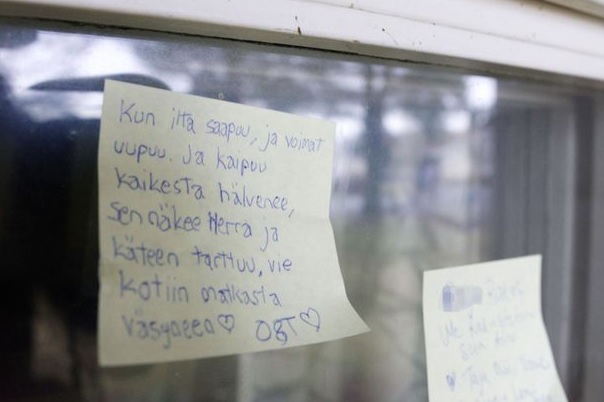 Kun ilta saapuu, ja voimat
uupuu. Ja kaipuu
kaikesta hälvenee,
sen näkee Herra ja
käteen tarttuu, vie
kotiin matkasta
väsyneen♡ OBT♡